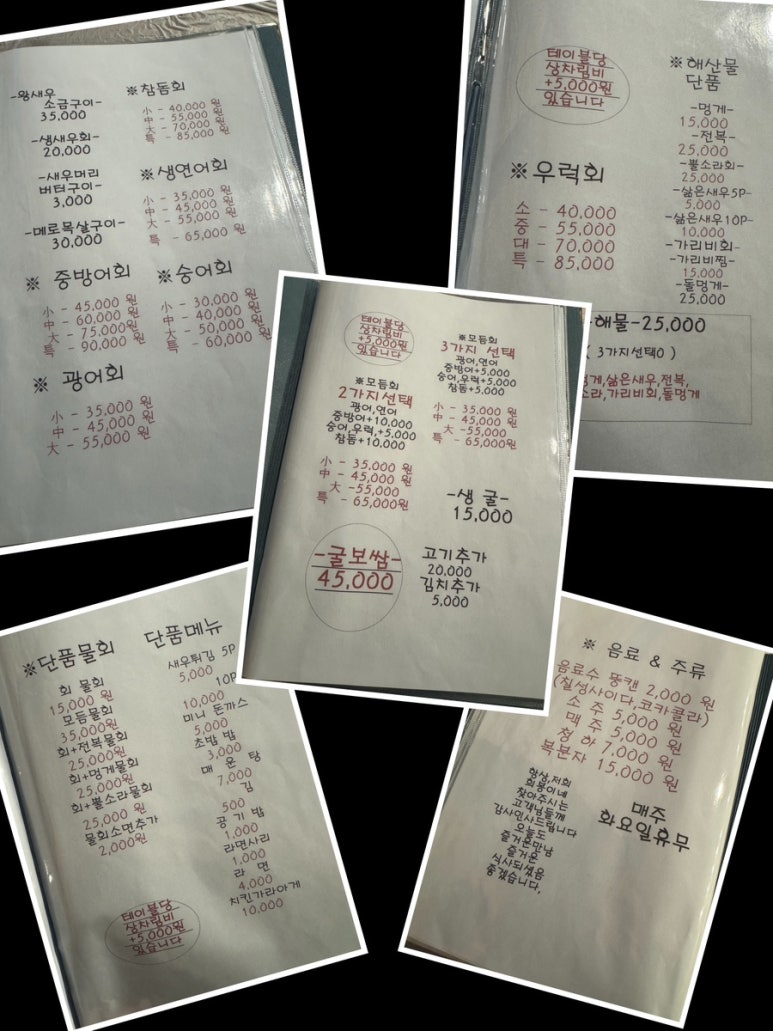 -왕새우
소금구이-
35,000
-생새우회-
20,000
-새우머리
버터구이-
3,000
-메로목살구이-
30,000
※참돔회
小 - 40,000 원
中 - 55,000 원
大 - 70,000 원
특 - 85,000 원
※생연어회
小 - 35,000 원
中 - 45,000 원
大 - 55,000 원
특 - 65,000 원
※ 중방어회
小 - 45,000 원
中 - 60,000 원
大 - 75,000원
특 - 90,000 원
※숭어회
小 - 30,000 원
中 - 40,000 원
大 - 50,000 원
특 - 60,000원
※ 광어회
小 - 35,000 원
中 - 45,000 원
大 - 55,000 원
테이블당
상차림비
+5,000원
있습니다
※우럭회
소 - 40,000
중 - 55,000
대 - 70,000
특 - 85,000
※해산물
단품
-멍게-
15,000
-전복-
25,000
-뿔소라회-
25,000
-삶은새우5P-
5,000
-삶은새우10P-
10,000
-가리비회-
-가리비찜-
15,000
-돌멍게-
25,000
해물-25,000
( 3가지선택O )
게,삶은새우,전복,
소라,가리비회,돌멍게
테이블당
상차림비
+5,000원
있습니다
※모듬회
2가지선택
광어,연어
중방어+10,000
숭어,우럭,+5,000
참돔+10,000
小 - 35,000 원
中 - 45,000 원
大 -55,000
특 - 65,000원
※모듬회
3가지 선택
광어,연어
중방어+5,000
숭어,우럭+5,000
참돔+5,000
小 - 35,000 원
中 - 45,000 원
大 -55,000
특 - 65,000원
-생 굴-
15,000
-굴보쌈-
45,000
고기추가
20,000
김치추가
5,000
※단품물회
회 물회
15,000 원
모듬물회
35,000원
회+전복물회
25,000원
회+멍게물회
25,000원
회+뿔소라물회
25,000 원
물회소면추가
2,000원
단품메뉴
새우튀김 5P
5,000
10P
10,000
미니 돈까스
5,000
초밥 밥
3,000
매 운 탕
7,000
김
500
공 기 밥
1,000
라면사리
1,000
라 면
4,000
치킨가라아게
10,000
테이블당
상차림비
+5,000원
있습니다
※ 음료 & 주류
음료수 뚱캔 2,000 원
(칠성사이다,코카콜라)
소 주 5,000 원
맥 주 5,000 원
청 하 7,000 원
복분자 15,000 원
항상,저희
회뽕이네
찾아주시는
고객님들께
감사인사드립니다
오늘도
즐거운만남
즐거운
식사되셨음
좋겠습니다,
매주
화요일휴무